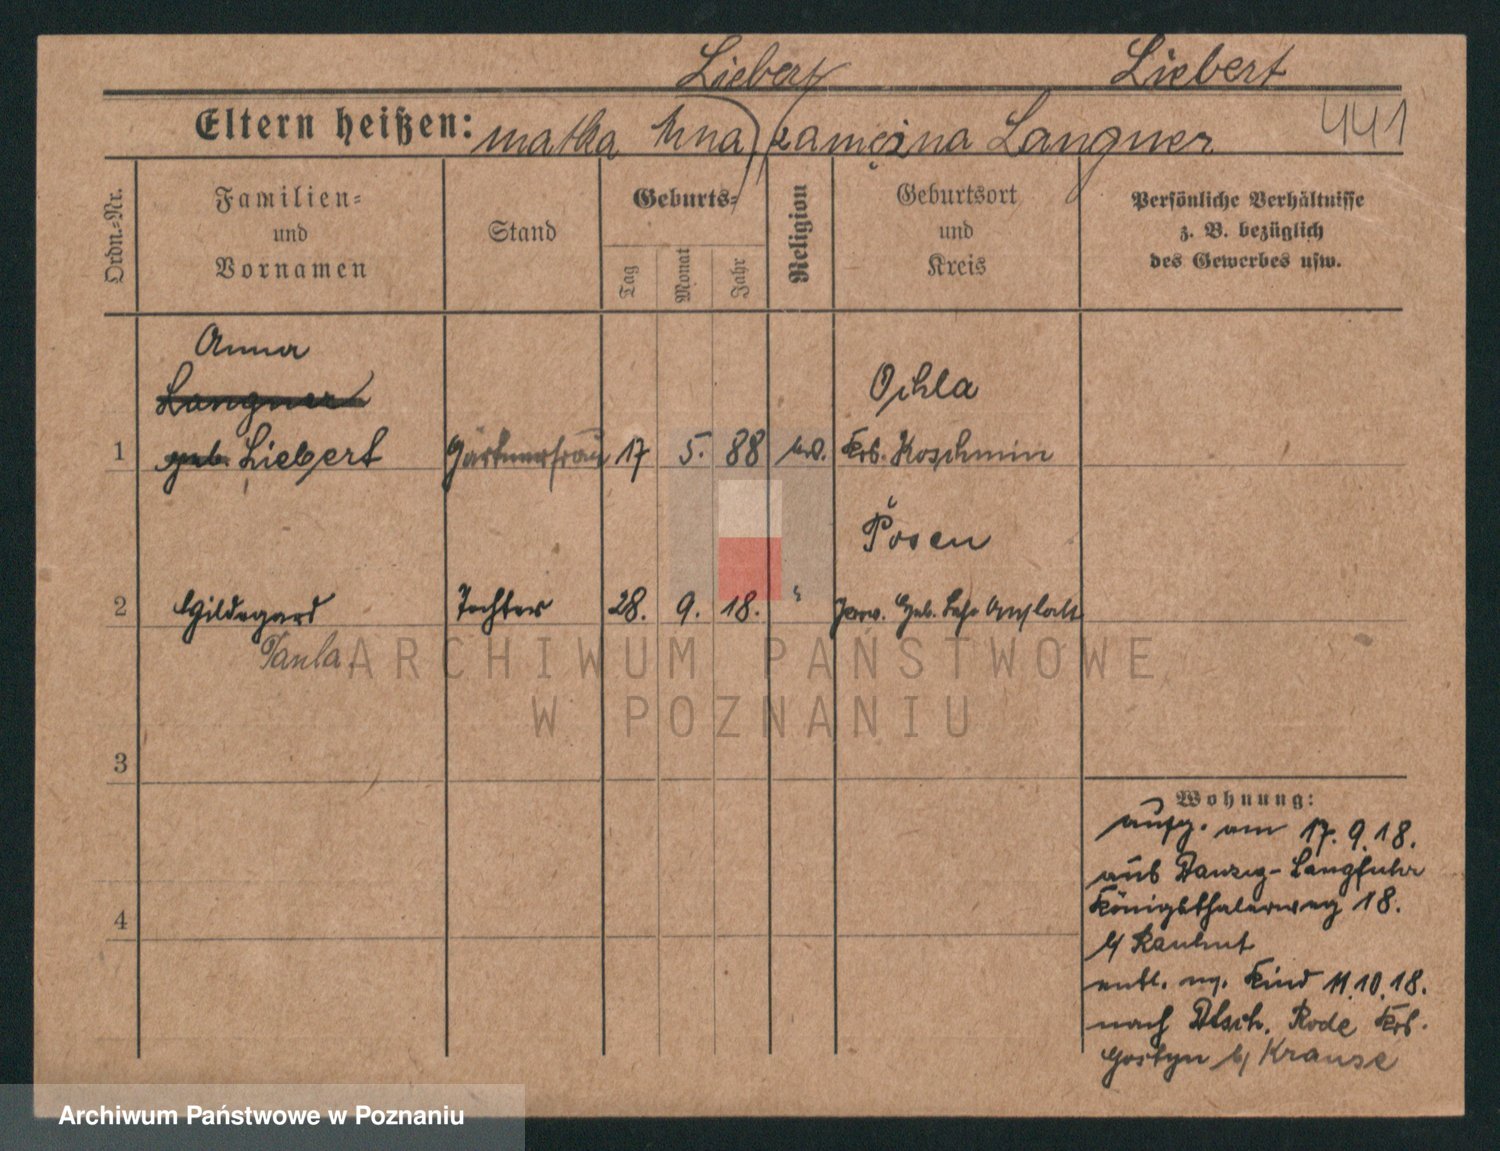 Liebert Liebert
Eltern heißen: matka Anna zamężna Langner 441
Ordn.=Nr.
Familien=
und
Vornamen
Stand
Geburts=
Tag
Monat
Jahr
Religion
Geburtsort
und
Kreis
Persönliche Verhältnisse
z. B. bezüglich
des Gewerbes usw.
Anna
Langner
1 geb. Liebert Gärtnerfrau 17 5. 88 ev.
Ochla
Krs. Koschmin
2 Hildegard Tochter 28. 9. 18. "
Posen
Prov. Heb. Lehr Anstalt
Paula
ARCHIWUM PAŃSTWOWE
W POZNANIU
3
4
Wohnung:
aufg. am 17. 9. 18.
aus Danzig-Langfuhr
Königsthalerweg 18.
b/ Rauhut
entl. m. Kind 11.10.18.
nach Dtsch. Rode Krs.
Gostyn b/ Krause
Archiwum Państwowe w Poznaniu